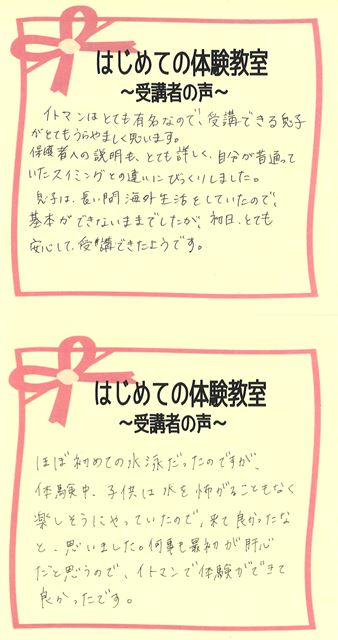 はじめての体験教室
～受講者の声～
イトマンはとても有名なので、受講できる息子
がとてもうらやましく思います。
保護者への説明も、とても詳しく、自分が昔通って
いたスイミングとの違いにびっくりしました。
息子は、長い間海外生活をしていたので、
基本ができないままでしたが、初日、とても
安心して、受講できたようです。
はじめての体験教室
～受講者の声～
ほぼ初めての水泳だったのですが、
体験中、子供は水を怖がることもなく
楽しそうにやっていたので、来て良かったな
と、思いました。何事も最初が肝心
だと思うので、イトマンで体験ができて
良かったです。